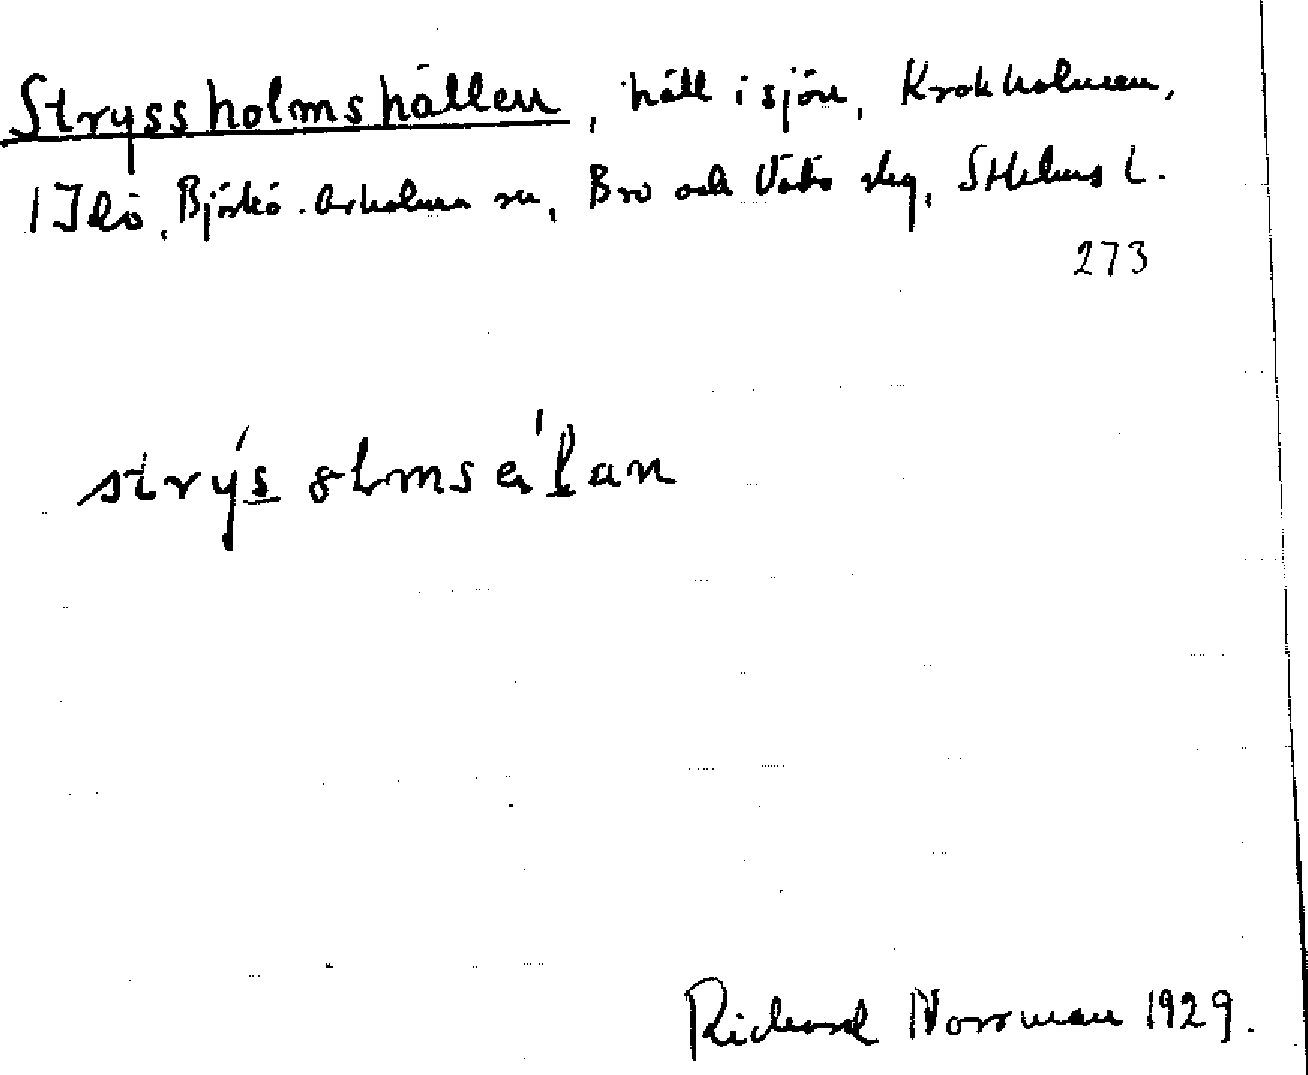 Stryssholmshällen, häll i sjön, Krokholmen,
1 Idö, Björkö-Arholma sn, Bro och Vätö skg, Sthlms l.
273
strýs ɵlmsɛ́lan
Richard Norrman 1929.